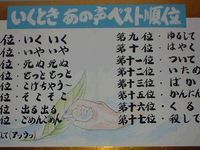 いくとき あの声ベスト順位
位・いくいく
位・いやいや
位・死ぬ死ぬ
位・もっともっと
位・こげちゃう~
位・そこそこ
位・出る出る
位・ごめんごめん
して(アッウッ)
第九位・ゆるして
第十位・はやく
第十一位・ついて
第十二位・いため
第十三位・ばか
第十四位・かんに
第十五位・だん
第十六位・くる
第十七位・殺して